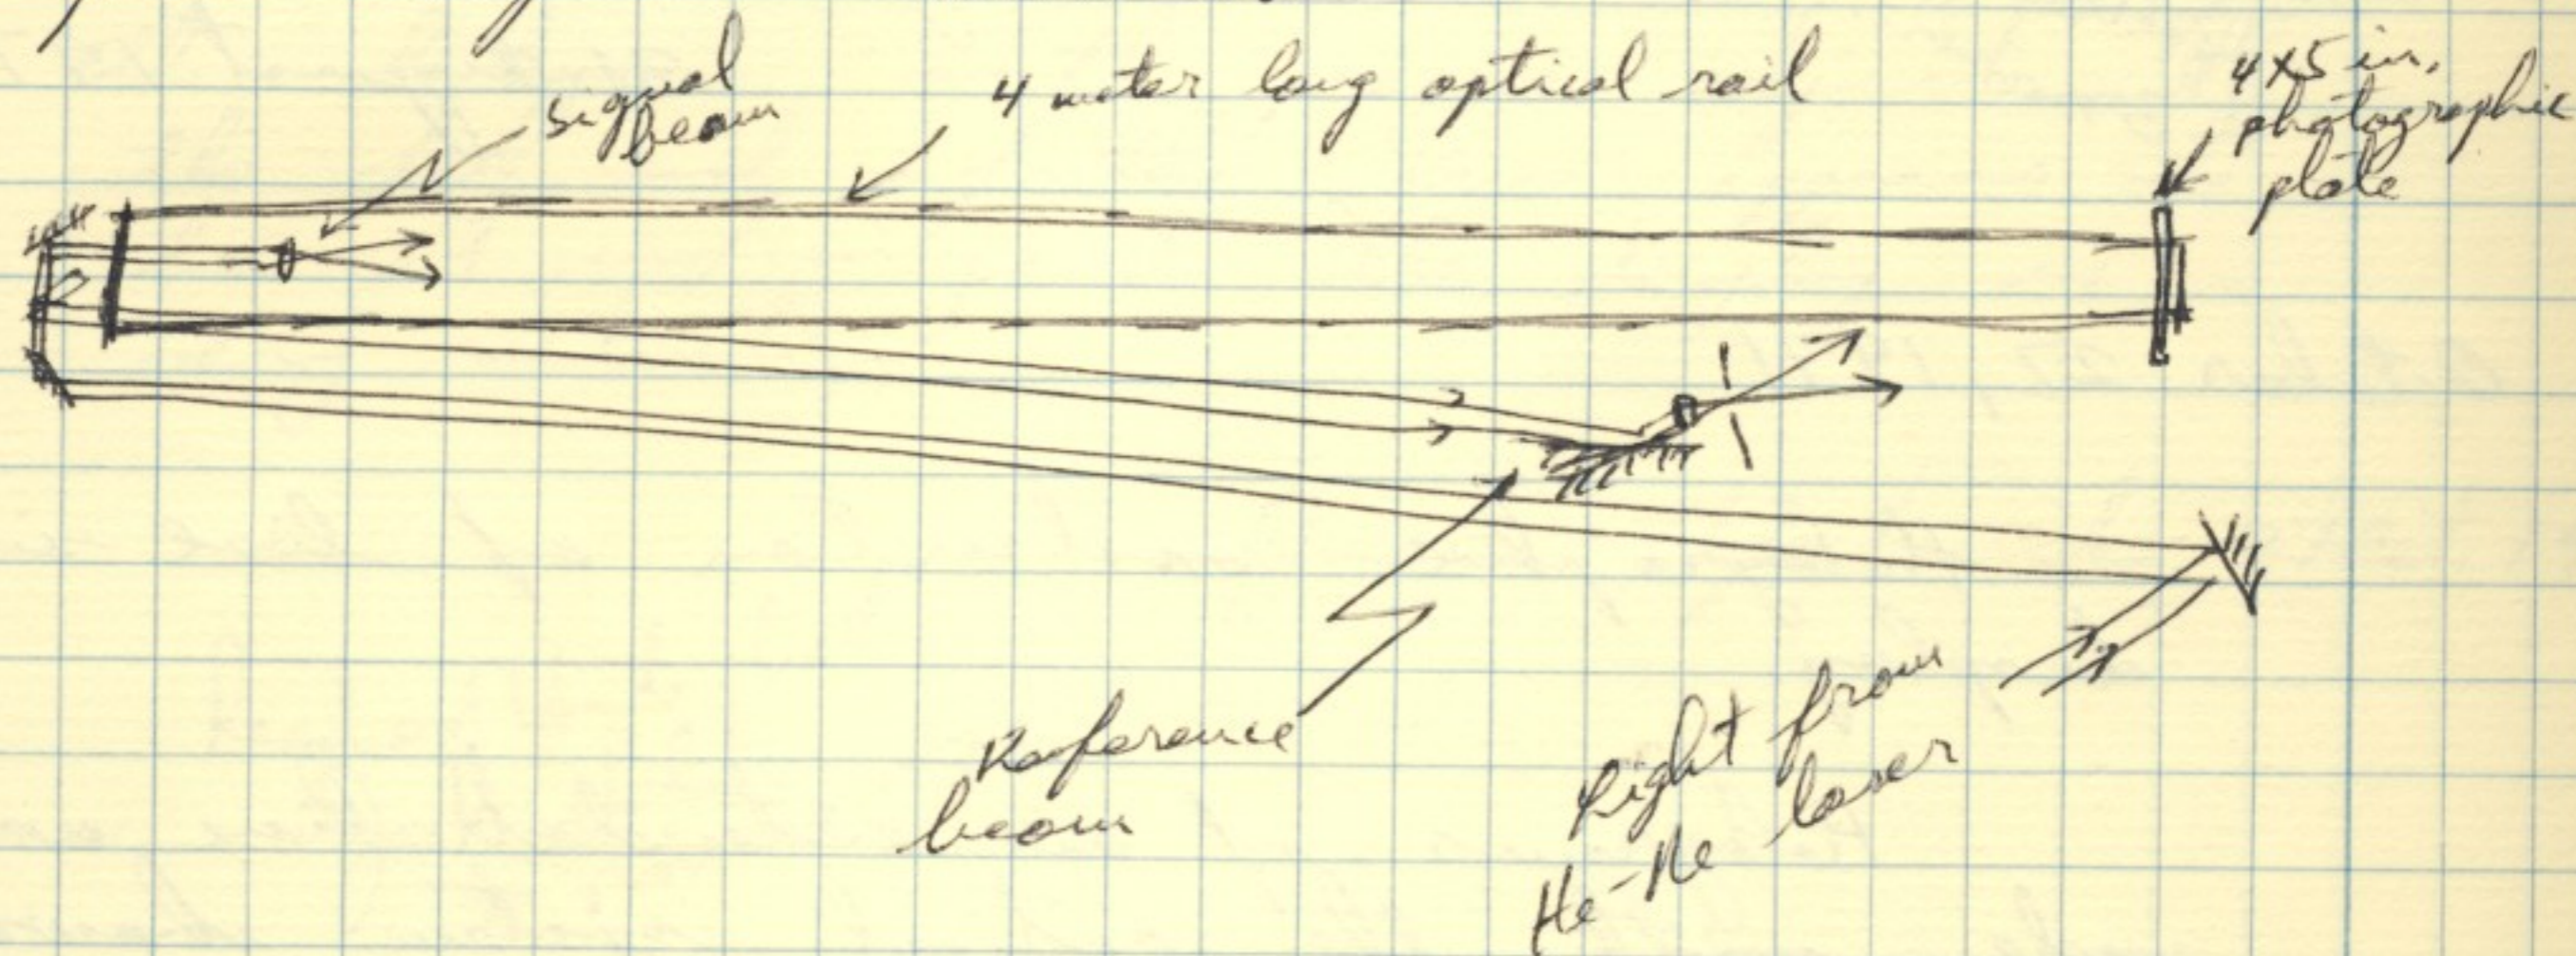 signal
beam
4 meter long optical rail
4x5 in.
photographic
plate
Reference
beam
Light from
He-Ne laser